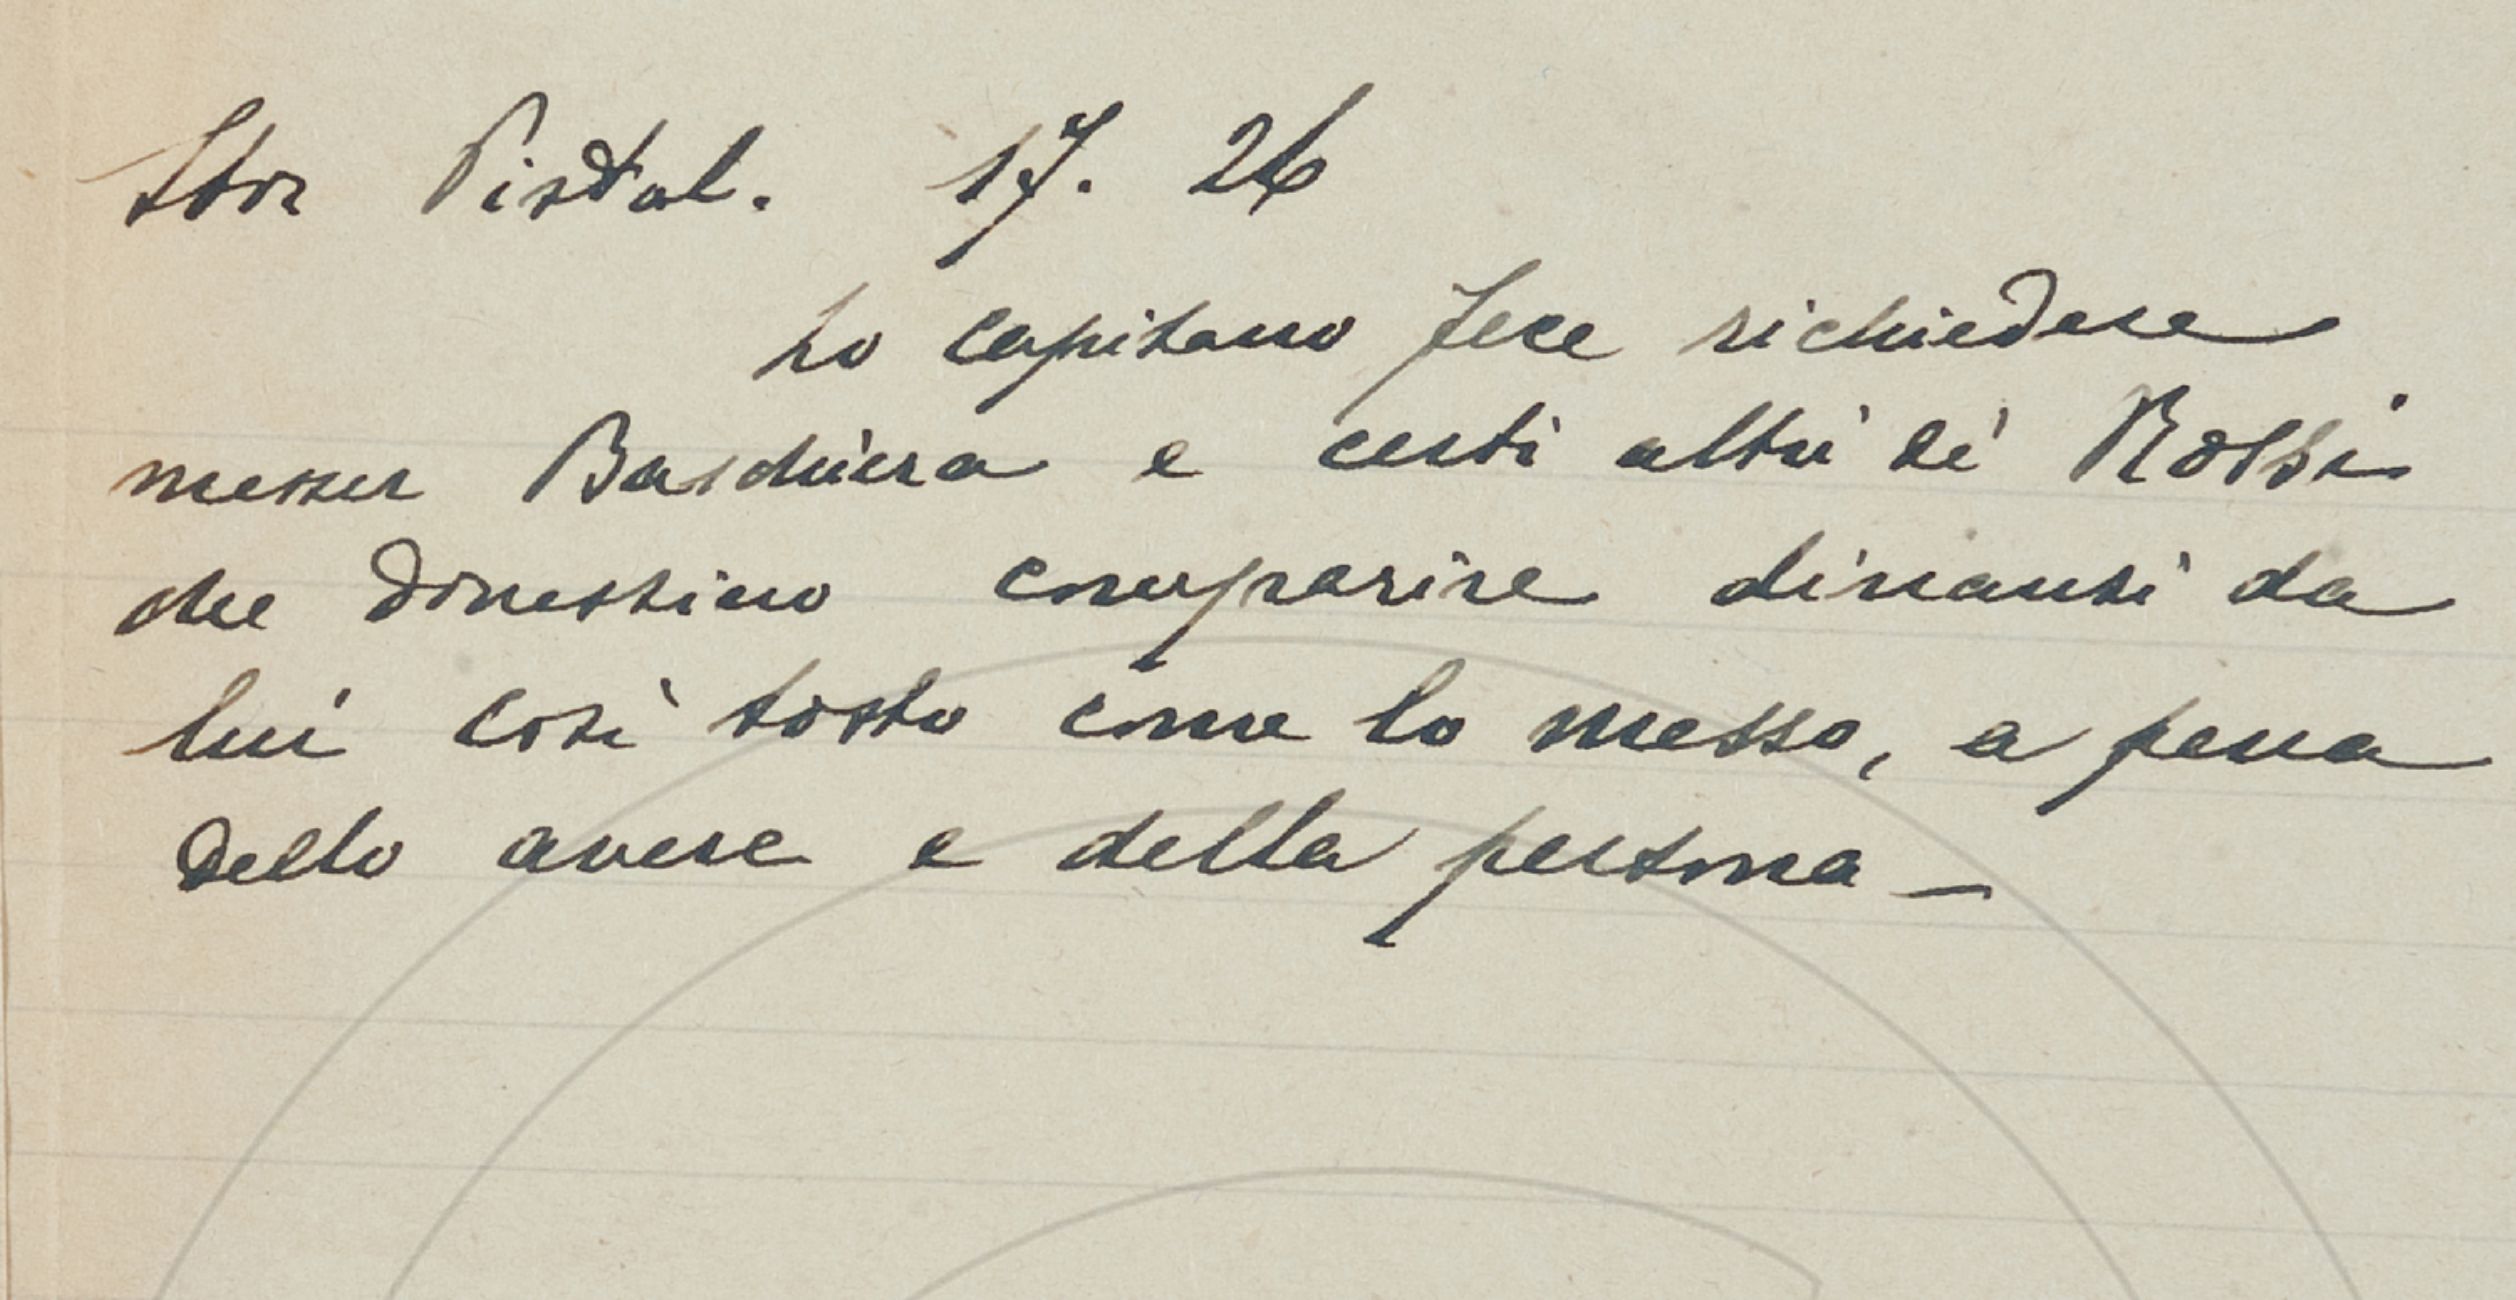 Stor Pistol. 17. 26
Lo capitano fece richiedere
messer Baschiera e certi altri de' Rossi
che dovessino comparire dinanzi da
lui così tosto come lo messo, a pena
dello avere e della persona —